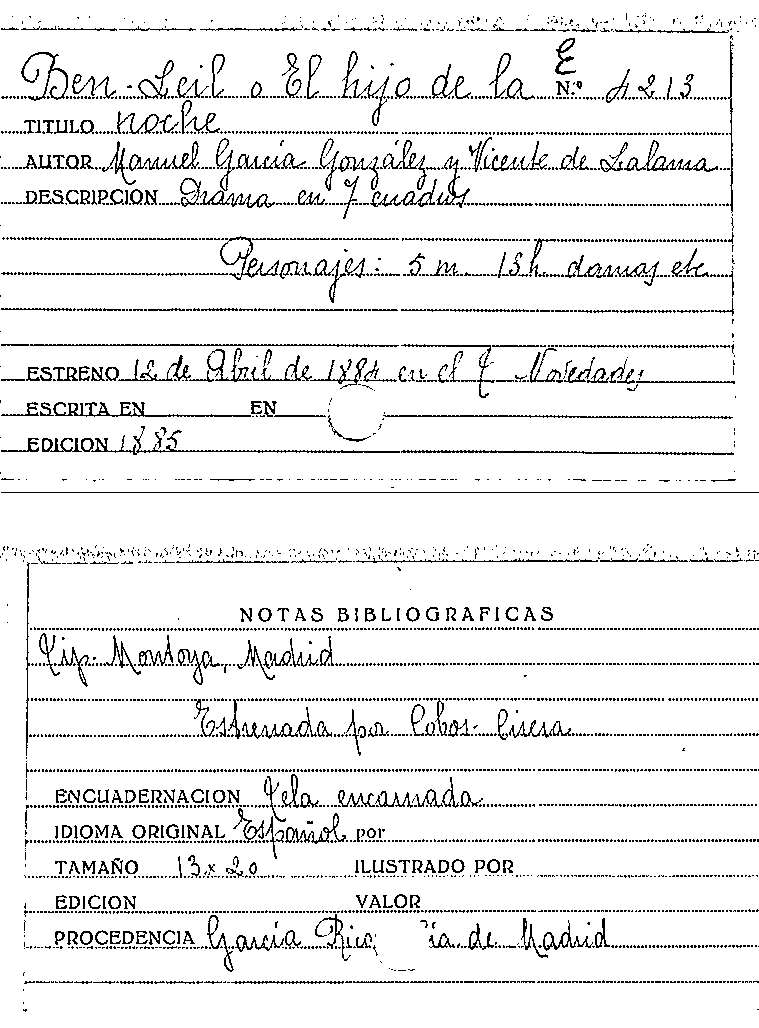 E
Ben-Leil o El hijo de la N.º 4213
TITULO noche
AUTOR Manuel García González y Vicente de Lalama
DESCRIPCION Drama en 7 cuadros
Personajes: 5 m. 13 h. damas etc.
ESTRENO 12 de Abril de 1884 en el T. Novedades
ESCRITA EN EN
EDICION 1885
NOTAS BIBLIOGRAFICAS
Tip. Montoya, Madrid
Estrenada por Cobos- Cisera
ENCUADERNACION Tela encarnada
IDIOMA ORIGINAL Español por
TAMAÑO 13 x 20 ILUSTRADO POR
EDICION VALOR
PROCEDENCIA García Rico ía de Madrid